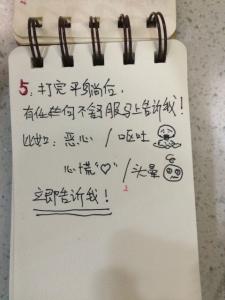 5. 打完平躺位,
有任何不舒服马上告诉我!
比如: 恶心 / 呕吐
心慌"♡" / 头晕
立即告诉我!